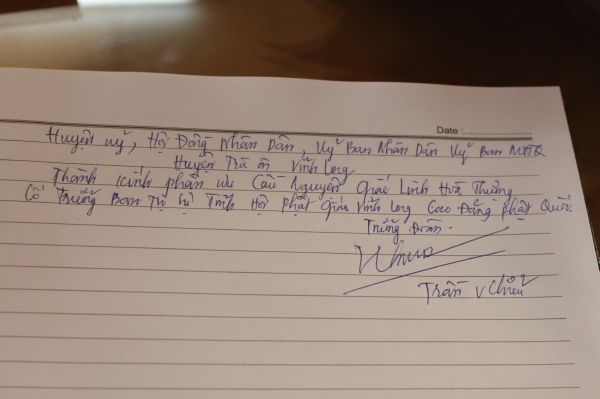 Date :
Huyện uỷ, Hội Đồng Nhân Dân, Uỷ Ban Nhân Dân Uỷ Ban MTTQ
Huyện Trà Ôn Vĩnh Long
Thành kính phân ưu Cầu Nguyện Giác Linh Hoà Thượng
Cố Trưởng Ban Trị sự Tỉnh Hội phật giáo Vĩnh Long Cao Đăng phật Quốc
Trưởng Đoàn.
Trần V Chiểu